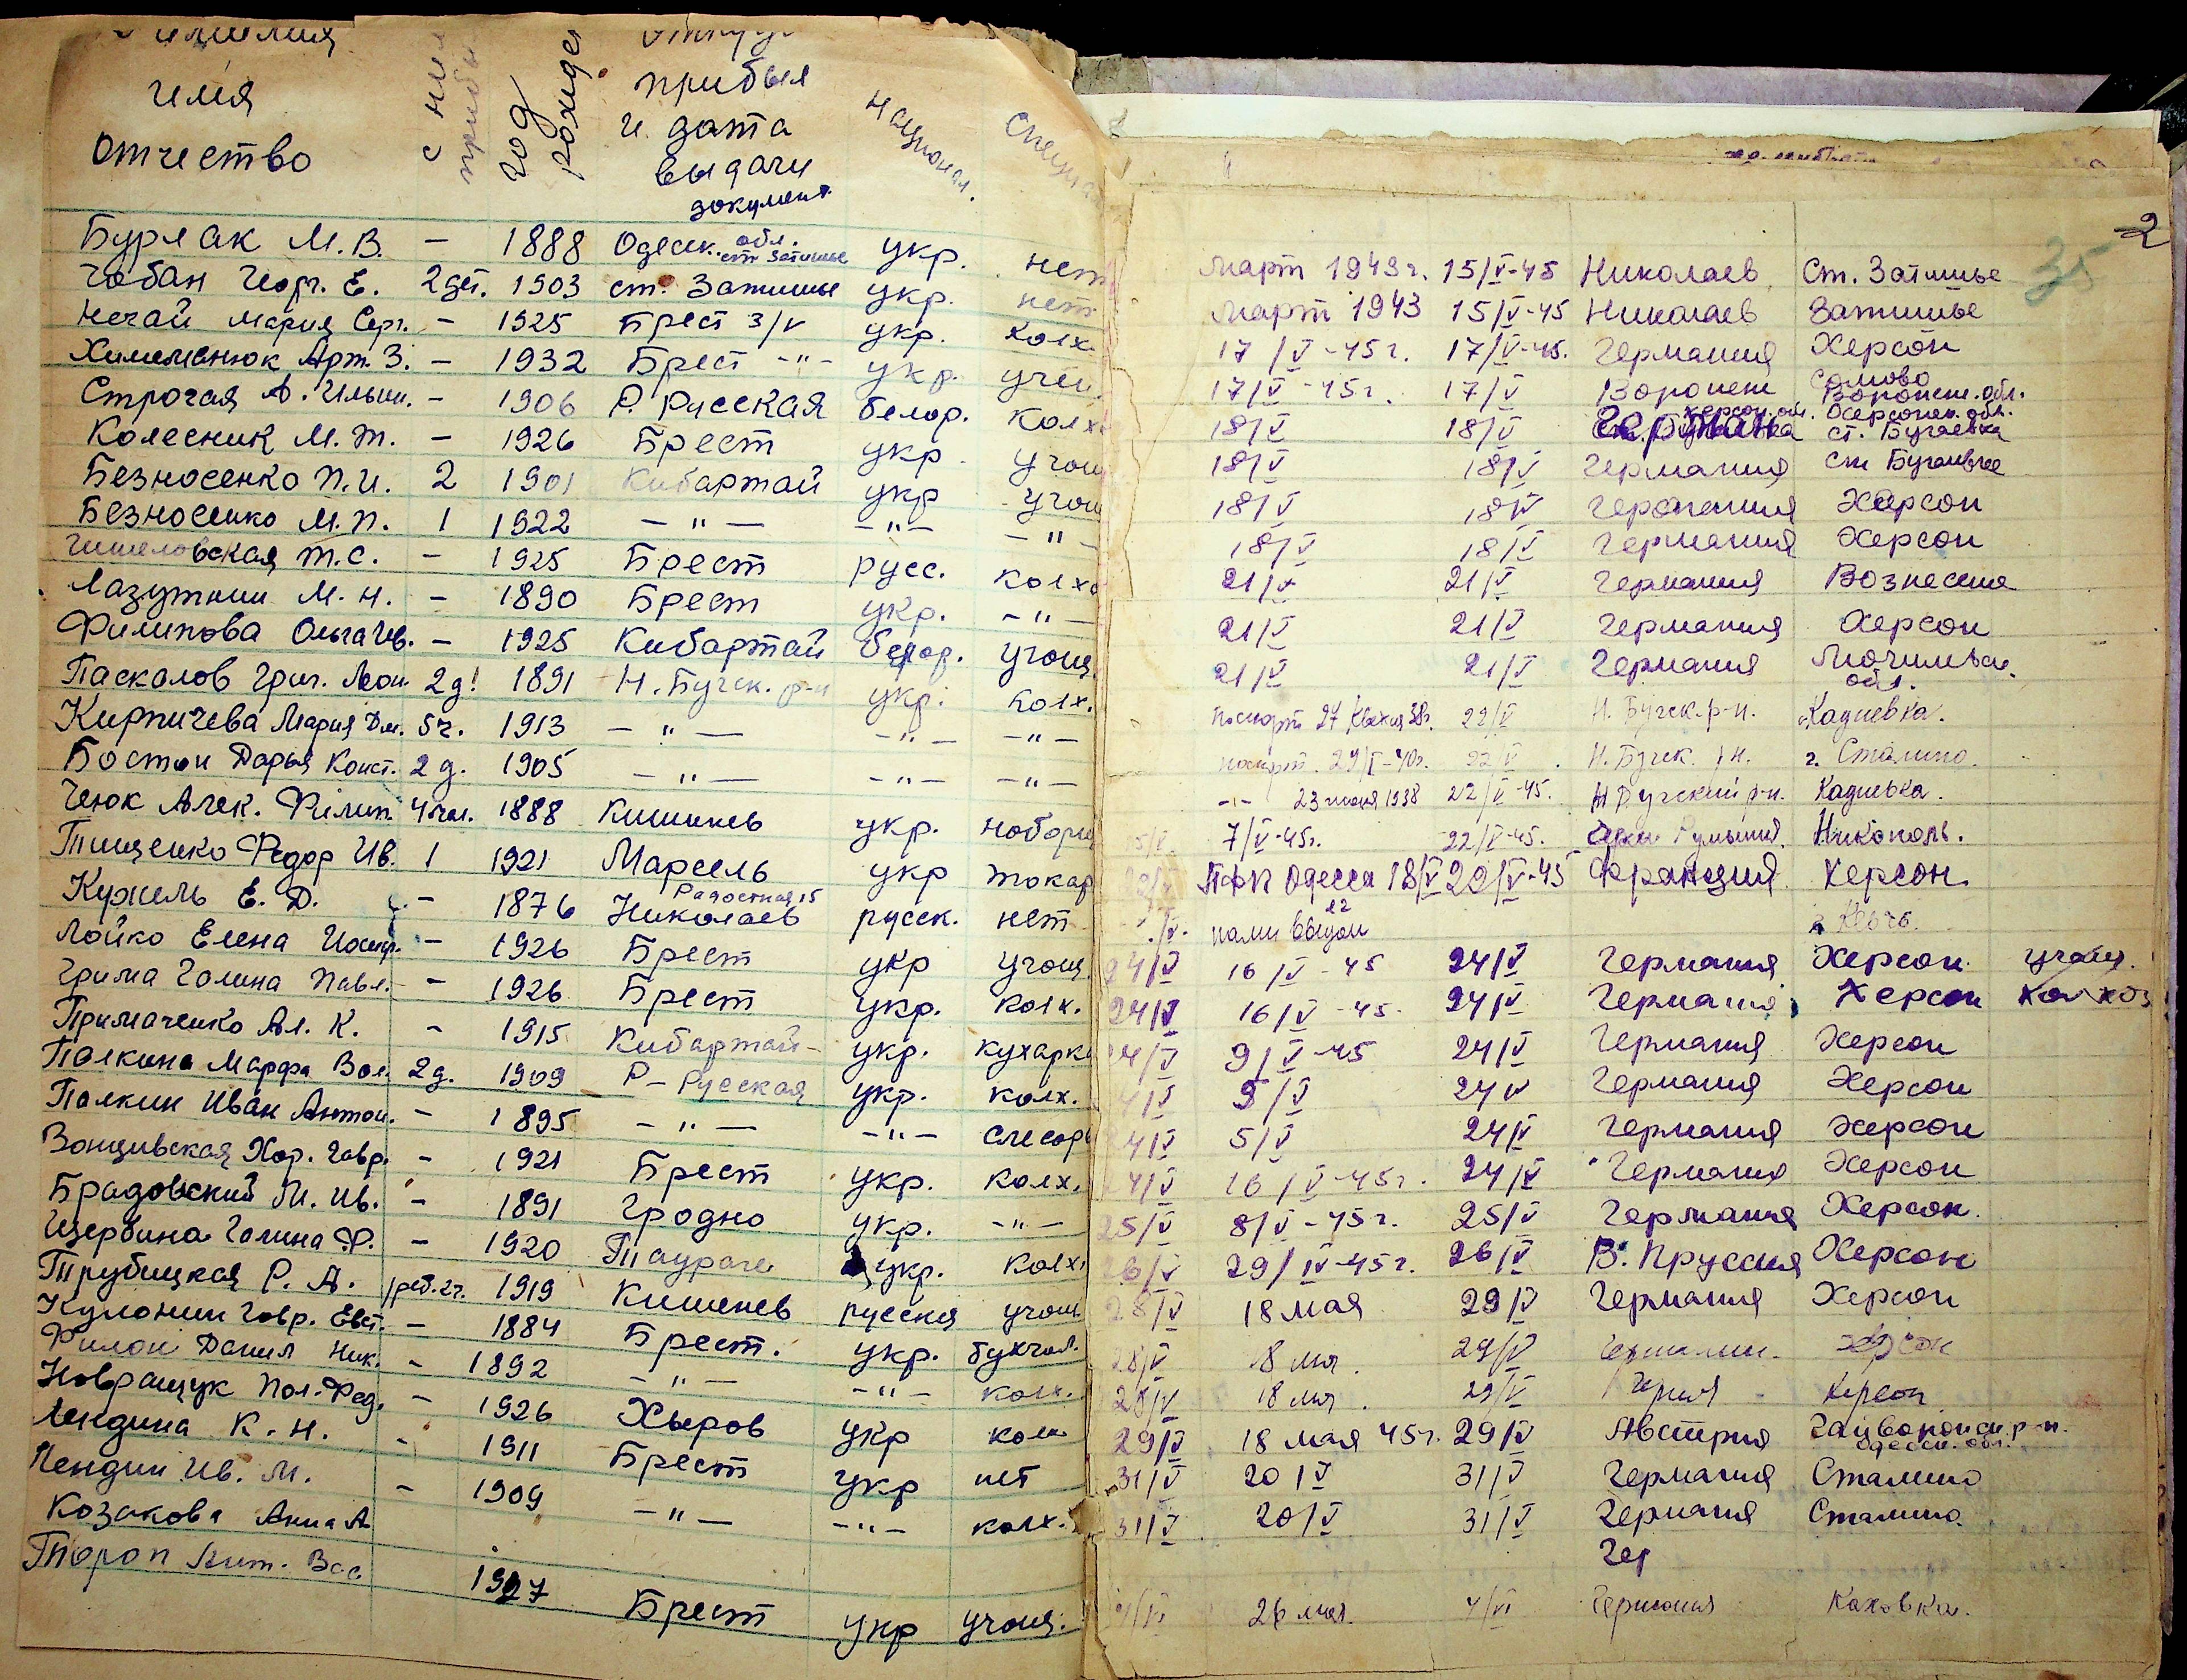 имя
отчество
с ним
год
прибыл
и дата
выдачи
документ
национал.
Бурлак М.В. - 1888 Одесск. обл. ст Затишье укр. нет
Чабан Георг. Е. 2 дет. 1903 ст. Затишье укр. нет
Нечай Мария Серг. - 1925 Брест 3/V укр. колх.
Арт. З. - 1932 Брест -"- укр.
Строгая А. Ильин. - 1906 Р. Русская белор. колх
Колесник М.Т. - 1926 Брест укр.
Безносенко П.И. 2 1901 Кибартай укр
Безносенко М.П. 1 1922 -"- -"- -"-
Т.С. - 1925 Брест русс. колхо
Лазуткин М.Н. - 1890 Брест укр. -"-
Филипова Ольга Ив. - 1925 Кибартай белор. учащ.
Паскалов Григ. Леон 2 д. 1891 Н. Бугск. р-н укр. колх.
Кирпичева Мария Дм. 5 ч. 1913 -"- -"- -"-
Бостон Дарья Конст. 2 д. 1905 -"- -"- -"-
Чеюк Алек. Філип. 4 чел. 1888 Кишинев укр.
Тищенко Федор Ив. 1 1921 Марсель укр токар
Кужель Е.Д. - 1876 Радостная 15 Николаев русск. нет
Лойко Елена Иосиф. - 1926 Брест укр учащ.
Грима Галина Павл. - 1926 Брест укр. колх.
Примаченко Ал. К. - 1915 Кибартай - укр. кухарка
Палкина Марфа Вас. 2 д. 1909 Р-Русская укр. колх.
Палкин Иван Антон. - 1895 -"- -"- слесарь
Хар. Гавр. - 1921 Брест укр. колх.
Брадовский М. Ив. - 1891 Гродно укр. -"-
Щербина Галина Ф. - 1920 Таураге укр. колх.
Трубицкая Р.А. 1 реб. 2 г. 1919 Кишенев русская
Гавр. Евст. - 1884 Брест. укр. бухгал.
Филон Данил Ник. - 1892 -"- -"- колх.
Новращук Пол. Фед. - 1926 Хыров укр колх
Лендина К.Н. - 1911 Брест укр нет
Лендин Ив. М. - 1909 -"- -"- колх.
Козакова Анна А
Тороп Вас 1927 Брест укр учащ.
2
35
март 1943 г. 15/V-45 Николаев Ст. Затишье
март 1943 15/V-45 Николаев Затишье
17/V-45 г. 17/V-45. Германия Херсон
17/V-45 г. 17/V Воронеж Сомово Воронеж. обл.
18/V 18/V Херсон. обл. ст. Бугаевка
18/V 18/V Германия ст Бугаевка
18/V 18/V Германия Херсон
18/V 18/V Германия Херсон
21/V 21/V Германия Вознесенс
21/V 21/V Германия Херсон
21/V 21/V Германия обл.
паспорт 27 38 г. 22/V Н. Бугск. р-н. Кадиевка.
паспорт. 29/I-40 г. 22/V. Н. Бугск. р-н. г. Сталино.
-"- 23 июня 1938 22/V-45. Н Бугский р-н. Кадиевка.
5/V 7/V-45 г. 22/V-45. Румыния. Никополь.
ПФП Одесса 18/V 22/V-45 Франция Херсон.
г. Керчь.
24/V 16/V-45 24/V Германия Херсон учащ.
24/V 16/V-45. 24/V Германия Херсон колхоз
24/V 9/V-45 24/V Германия Херсон
24/V 5/V 24 V Германия Херсон
24/V 5/V 24/V Германия Херсон
24/V 16/V-45 г. 24/V Германия Херсон
25/V 8/V-45 г. 25/V Германия Херсон.
26/V 29/IV-45 г. 26/V В. Пруссия Херсон
28/V 18 мая 29/V Германия Херсон
28/V 18 мая. 29/V Германия. Херсон
28/V 18 мая. 29/V Херсон
29/V 18 мая 45 г. 29/V Австрия Гайворонск. р-н. Одесск. обл.
31/V 20/V 31/V Германия Сталино
31/V 20/V 31/V Германия Сталино
Гер
4/VI 26 мая. 4/VI Германия Каховка.